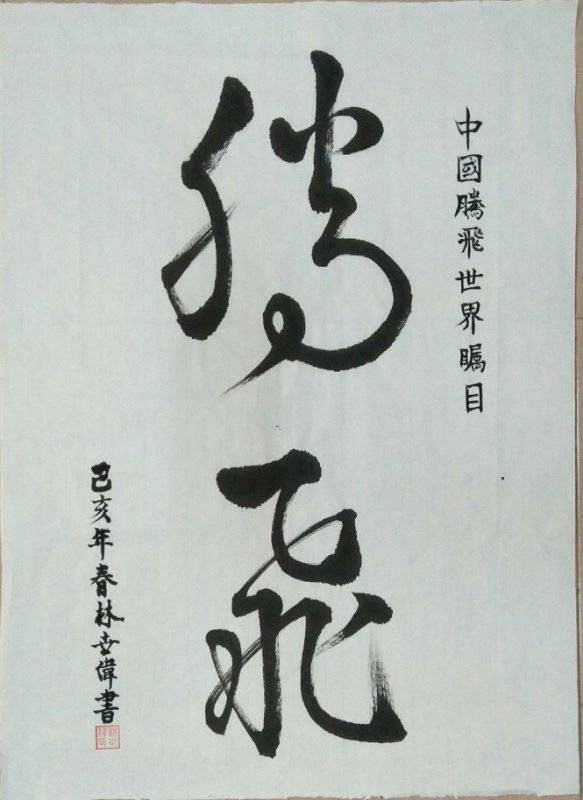 中國騰飛世界瞩目
騰飛
己亥年春林世偉書